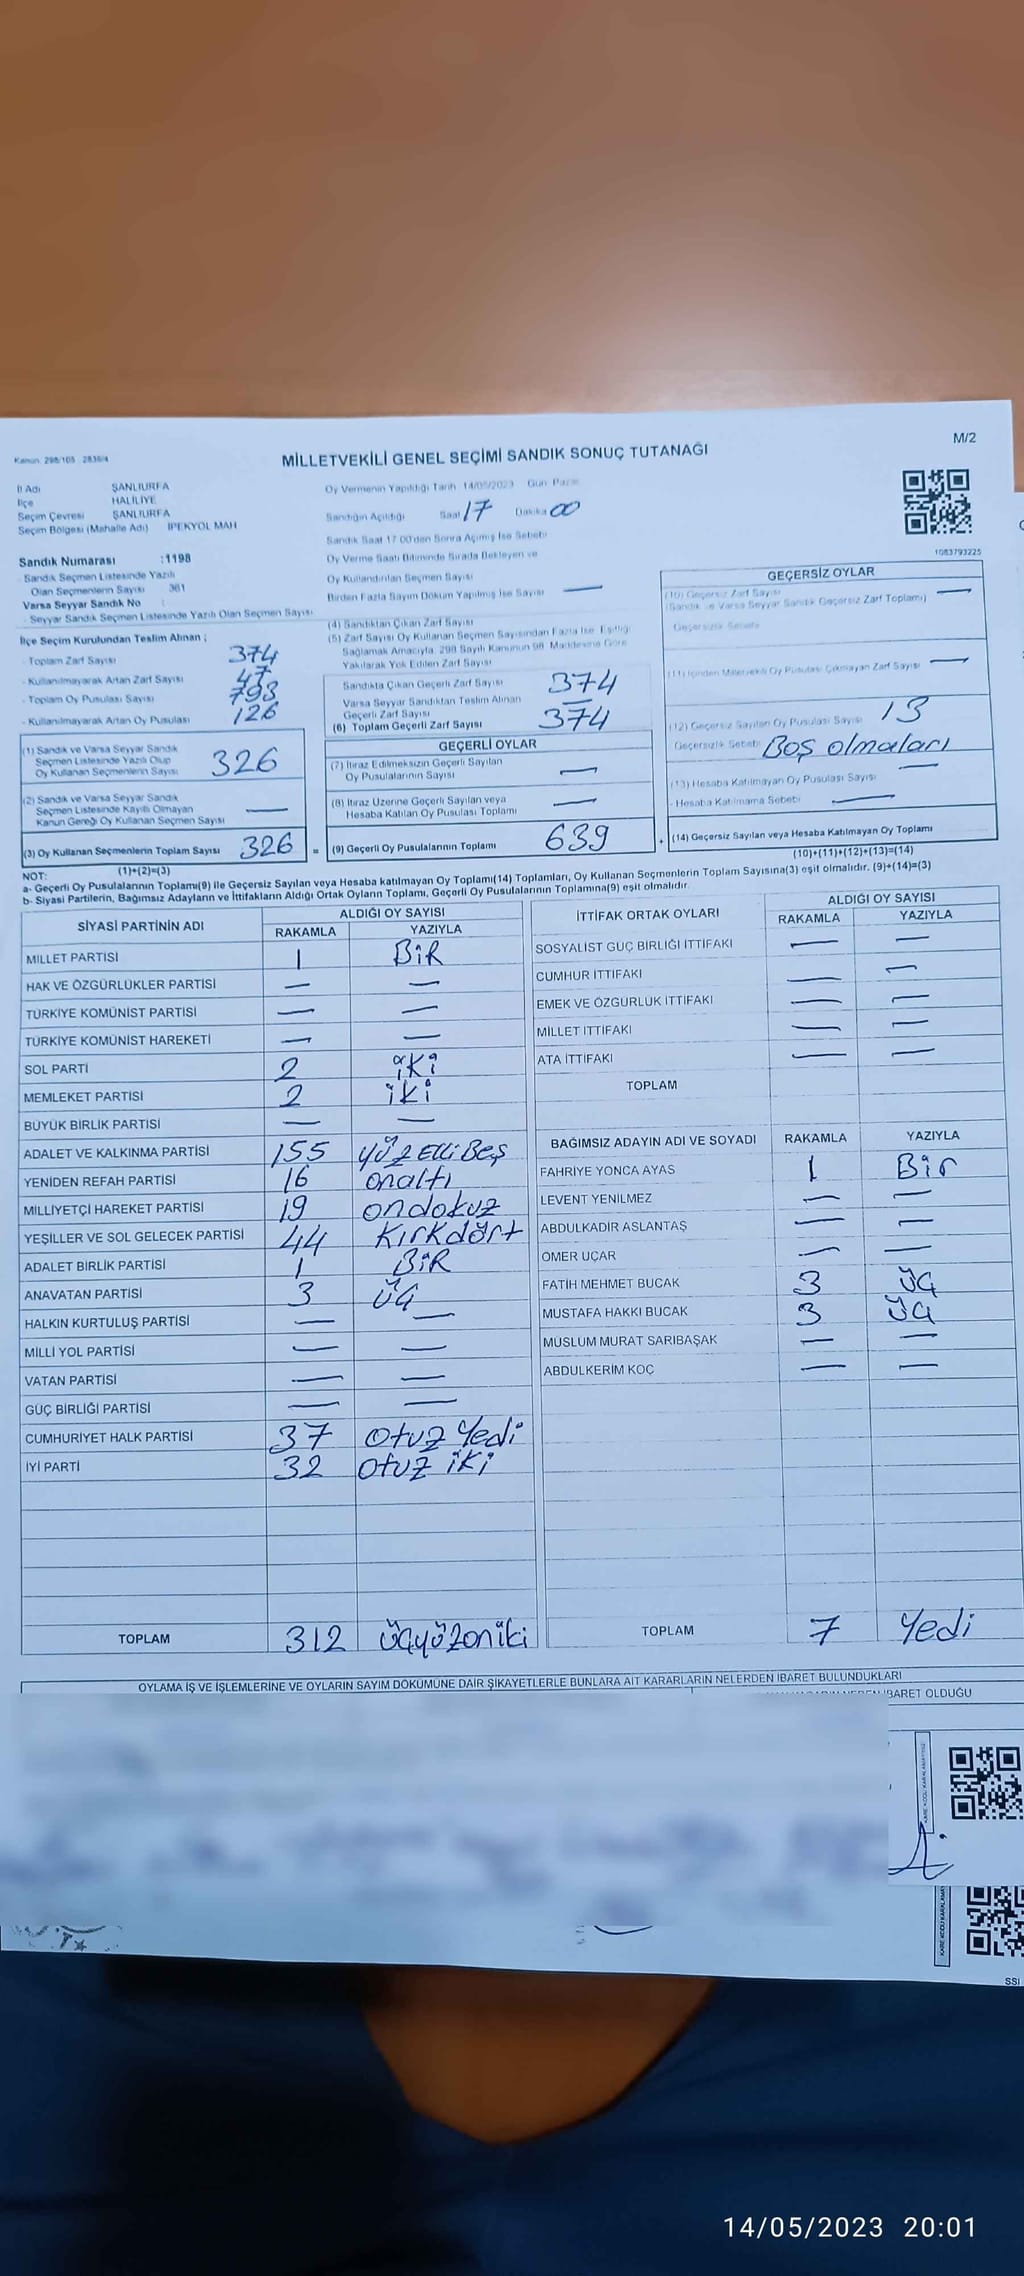 M/2
Kanun: 298/105 2839/4
MİLLETVEKİLİ GENEL SEÇİMİ SANDIK SONUÇ TUTANAĞI
İl Adı ŞANLIURFA
İlçe HALİLİYE
Seçim Çevresi ŞANLIURFA
Seçim Bölgesi (Mahalle Adı) İPEKYOL MAH
Sandık Numarası :1198
- Sandık Seçmen Listesinde Yazılı
Olan Seçmenlerin Sayısı 361
Varsa Seyyar Sandık No :
- Seyyar Sandık Seçmen Listesinde Yazılı Olan Seçmen Sayısı
İlçe Seçim Kurulundan Teslim Alınan ;
- Toplam Zarf Sayısı 374
- Kullanılmayarak Artan Zarf Sayısı 47
- Toplam Oy Pusulası Sayısı 793
- Kullanılmayarak Artan Oy Pusulası 126
(1) Sandık ve Varsa Seyyar Sandık
Seçmen Listesinde Yazılı Olup
Oy Kullanan Seçmenlerin Sayısı 326
(2) Sandık ve Varsa Seyyar Sandık
Seçmen Listesinde Kayıtlı Olmayan
Kanun Gereği Oy Kullanan Seçmen Sayısı —
(3) Oy Kullanan Seçmenlerin Toplam Sayısı 326
(1)+(2)=(3)
Oy Vermenin Yapıldığı Tarih 14/05/2023 Gün Pazar
Sandığın Açıldığı Saat 17 Dakika 00
Sandık Saat 17.00'den Sonra Açılmış İse Sebebi
Oy Verme Saati Bitiminde Sırada Bekleyen ve
Oy Kullandırılan Seçmen Sayısı
Birden Fazla Sayım Döküm Yapılmış İse Sayısı —
(4) Sandıktan Çıkan Zarf Sayısı
(5) Zarf Sayısı Oy Kullanan Seçmen Sayısından Fazla İse, Eşitliği
Sağlamak Amacıyla, 298 Sayılı Kanunun 98. Maddesine Göre
Yakılarak Yok Edilen Zarf Sayısı
Sandıkta Çıkan Geçerli Zarf Sayısı 374
Varsa Seyyar Sandıktan Teslim Alınan
Geçerli Zarf Sayısı —
(6) Toplam Geçerli Zarf Sayısı 374
GEÇERLİ OYLAR
(7) İtiraz Edilmeksizin Geçerli Sayılan
Oy Pusulalarının Sayısı —
(8) İtiraz Üzerine Geçerli Sayılan veya
Hesaba Katılan Oy Pusulası Toplamı —
= (9) Geçerli Oy Pusulalarının Toplamı 639
1083793225
GEÇERSİZ OYLAR
(10) Geçersiz Zarf Sayısı
(Sandık ve Varsa Seyyar Sandık Geçersiz Zarf Toplamı) —
Geçersizlik Sebebi
(11) İçinden Milletvekili Oy Pusulası Çıkmayan Zarf Sayısı —
(12) Geçersiz Sayılan Oy Pusulası Sayısı 13
Geçersizlik Sebebi Boş olmaları
(13) Hesaba Katılmayan Oy Pusulası Sayısı —
- Hesaba Katılmama Sebebi —
+ (14) Geçersiz Sayılan veya Hesaba Katılmayan Oy Toplamı
(10)+(11)+(12)+(13)=(14)
NOT:
a- Geçerli Oy Pusulalarının Toplamı(9) ile Geçersiz Sayılan veya Hesaba katılmayan Oy Toplamı(14) Toplamları, Oy Kullanan Seçmenlerin Toplam Sayısına(3) eşit olmalıdır. (9)+(14)=(3)
b- Siyasi Partilerin, Bağımsız Adayların ve İttifakların Aldığı Ortak Oyların Toplamı, Geçerli Oy Pusulalarının Toplamına(9) eşit olmalıdır.
SİYASİ PARTİNİN ADI ALDIĞI OY SAYISI
RAKAMLA YAZIYLA
MİLLET PARTİSİ 1 BİR
HAK VE ÖZGÜRLÜKLER PARTİSİ — —
TÜRKİYE KOMÜNİST PARTİSİ — —
TÜRKİYE KOMÜNİST HAREKETİ — —
SOL PARTİ 2 iki
MEMLEKET PARTİSİ 2 iki
BÜYÜK BİRLİK PARTİSİ — —
ADALET VE KALKINMA PARTİSİ 155 YÜZ Elli Beş
YENİDEN REFAH PARTİSİ 16 onaltı
MİLLİYETÇİ HAREKET PARTİSİ 19 ondokuz
YEŞİLLER VE SOL GELECEK PARTİSİ 44 Kırkdört
ADALET BİRLİK PARTİSİ 1 BİR
ANAVATAN PARTİSİ 3 ÜÇ
HALKIN KURTULUŞ PARTİSİ — —
MİLLİ YOL PARTİSİ — —
VATAN PARTİSİ — —
GÜÇ BİRLİĞİ PARTİSİ — —
CUMHURİYET HALK PARTİSİ 37 Otuz Yedi
İYİ PARTİ 32 otuz iki
TOPLAM 312 Üçyüzoniki
İTTİFAK ORTAK OYLARI ALDIĞI OY SAYISI
RAKAMLA YAZIYLA
SOSYALİST GÜÇ BİRLİĞİ İTTİFAKI — —
CUMHUR İTTİFAKI — —
EMEK VE ÖZGÜRLÜK İTTİFAKI — —
MİLLET İTTİFAKI — —
ATA İTTİFAKI — —
TOPLAM
BAĞIMSIZ ADAYIN ADI VE SOYADI RAKAMLA YAZIYLA
FAHRİYE YONCA AYAS 1 Bir
LEVENT YENİLMEZ — —
ABDULKADİR ASLANTAŞ — —
ÖMER UÇAR — —
FATİH MEHMET BUCAK 3 ÜÇ
MUSTAFA HAKKI BUCAK 3 ÜÇ
MÜSLÜM MURAT SARIBAŞAK — —
ABDULKERİM KOÇ — —
TOPLAM 7 Yedi
OYLAMA İŞ VE İŞLEMLERİNE VE OYLARIN SAYIM DÖKÜMÜNE DAİR ŞİKAYETLERLE BUNLARA AİT KARARLARIN NELERDEN İBARET BULUNDUKLARI
İBARET OLDUĞU
KARE KODU KARALAMAYINIZ
KARE KODU KARALAMAY
SSI
14/05/2023 20:01